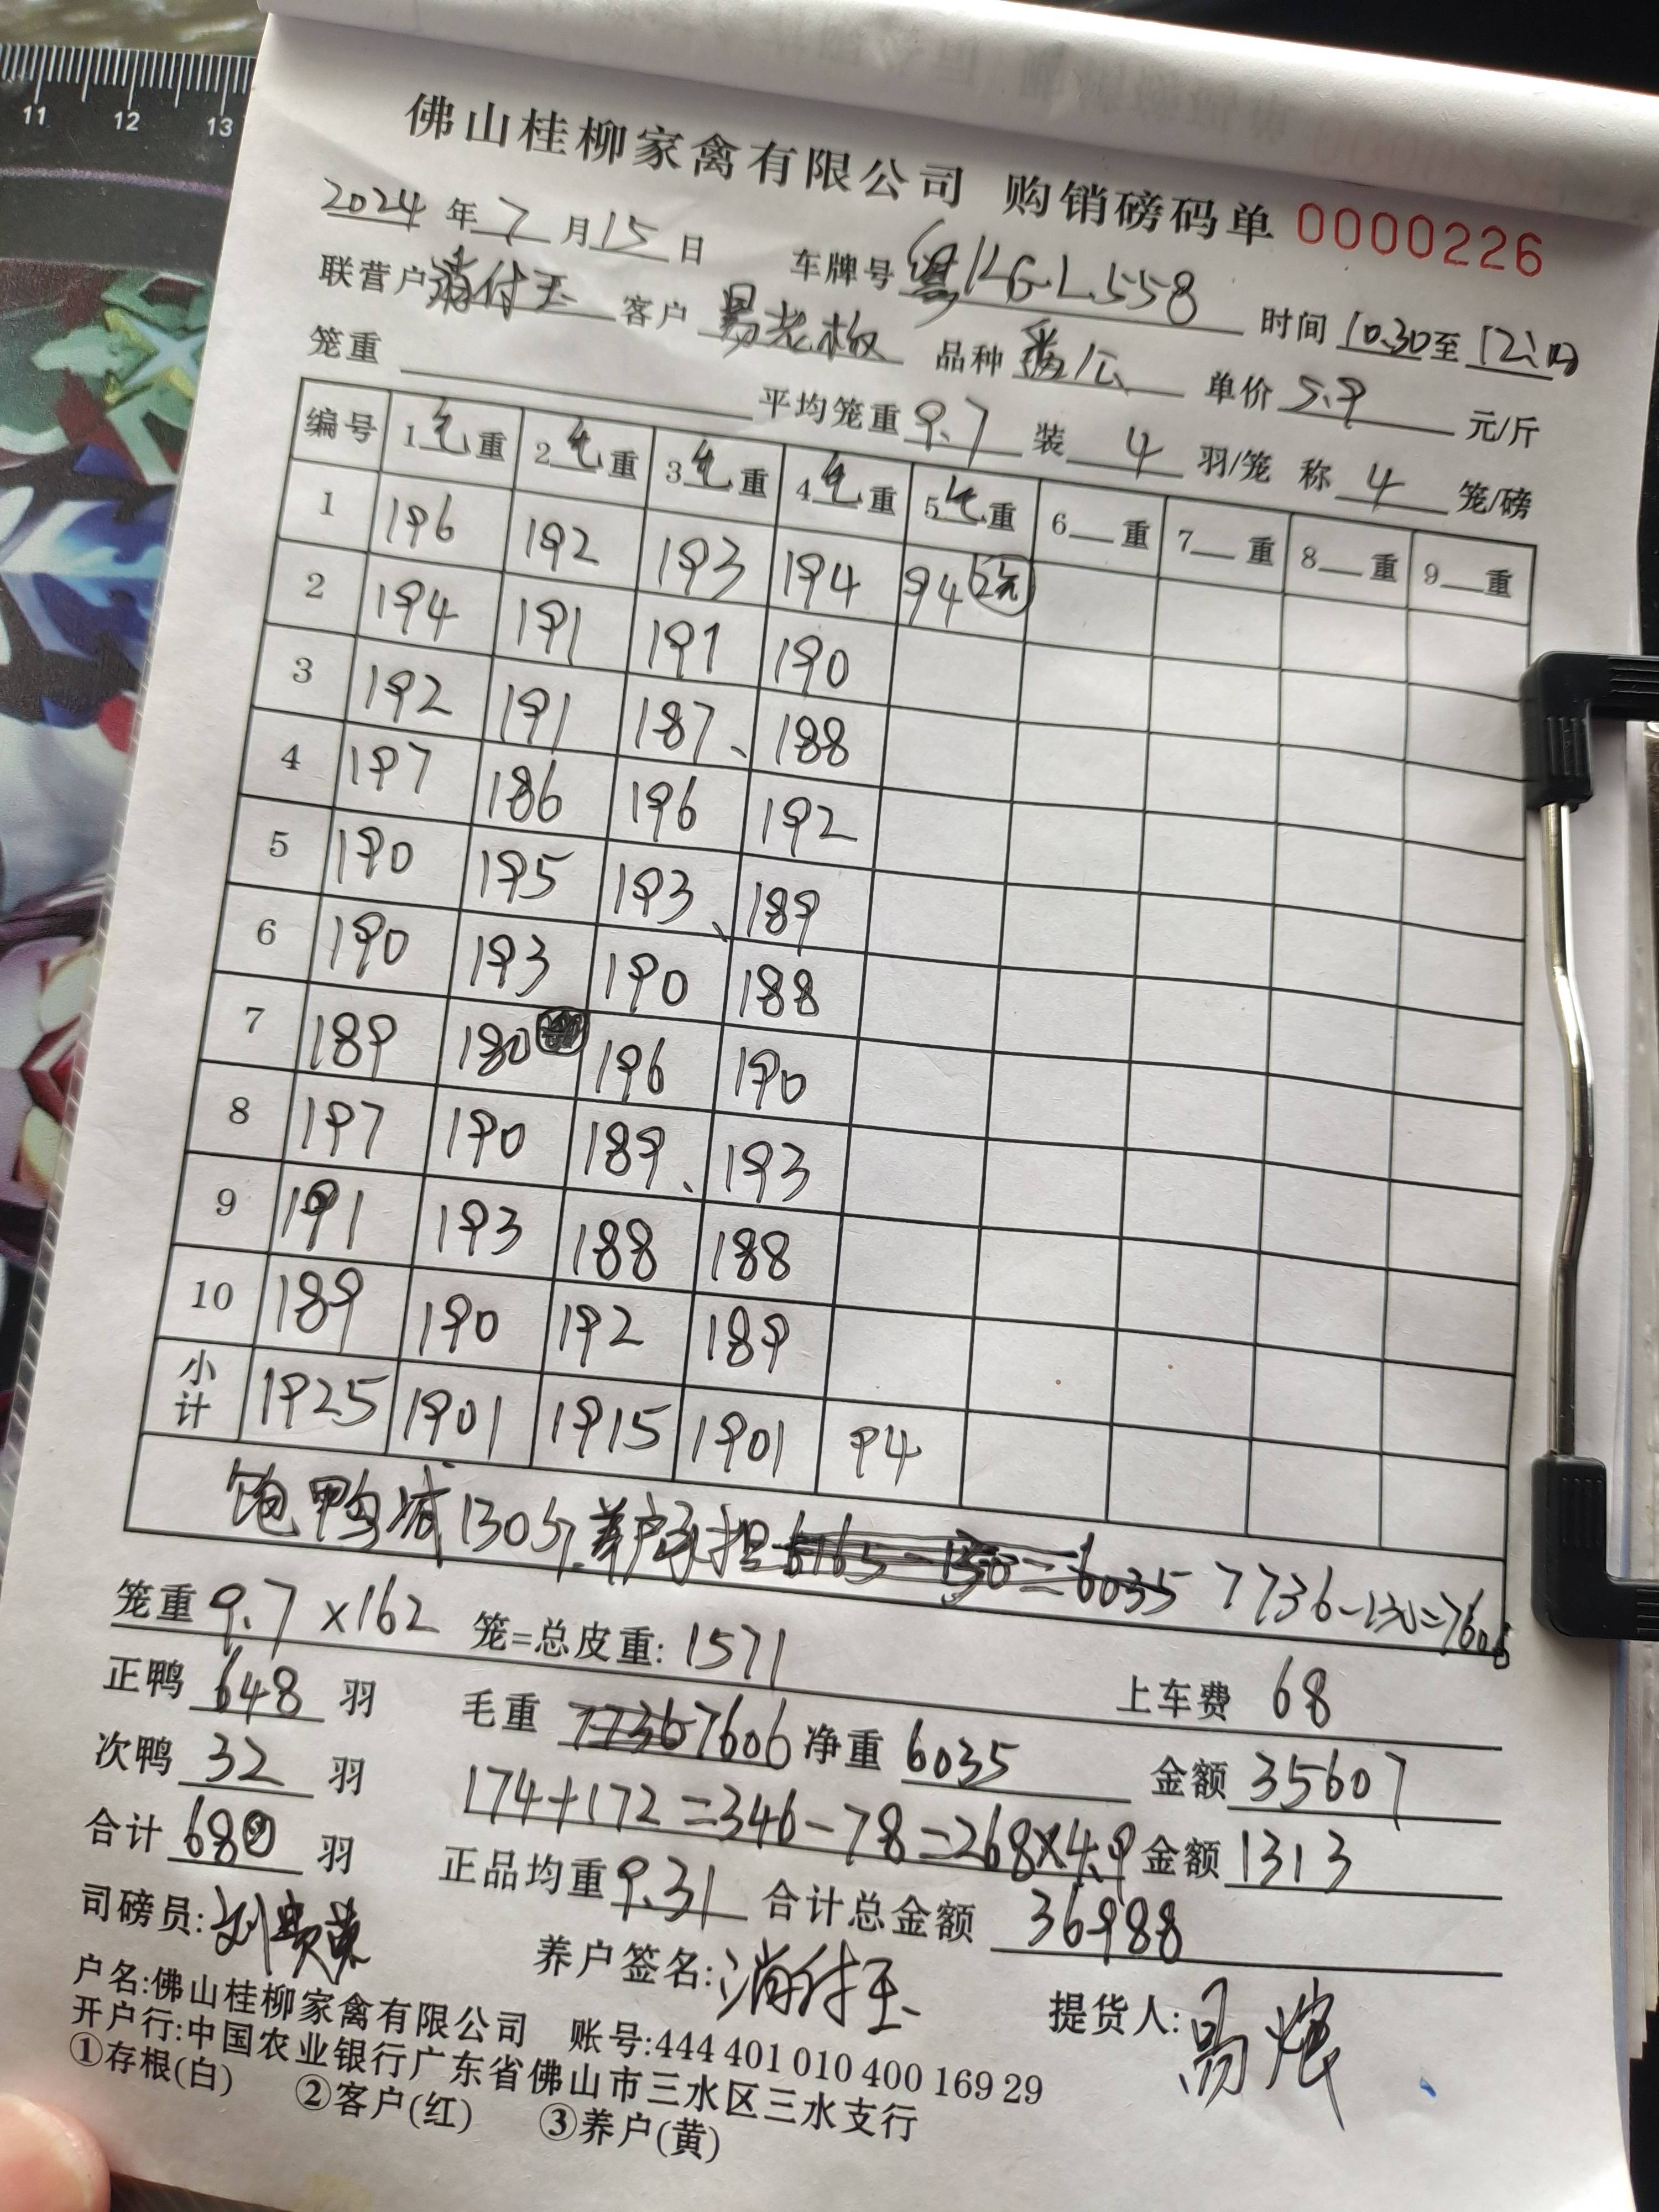 11 12 13
佛山桂柳家禽有限公司 购销磅码单 0000226
2024年7月15日 车牌号粤KGL558 时间10.30至12:10
联营户付玉 客户易老板 品种番公 单价5.9元/斤
笼重 平均笼重9.7 装4羽/笼 称4笼/磅
编号 1毛重 2毛重 3毛重 4毛重 5毛重 6重 7重 8重 9重
1 196 192 193 194 94
2 194 191 191 190
3 192 191 187、 188
4 197 186 196 192
5 190 195 193、 189
6 190 193 190 188
7 189 180 196 190
8 197 190 189、 193
9 191 193 188 188
10 189 190 192 189
小计 1925 1901 1915 1901 94
饱鸭减130斤养户承担 6165-130=6035 7736-130=7606
笼重9.7×162笼=总皮重:1571 上车费68
正鸭648羽 毛重 7736 7606 净重6035 金额35607
次鸭32羽 174+172=346-78=268×4.9 金额1313
合计680羽 正品均重9.31 合计总金额36988
司磅员:刘 养户签名:付玉 提货人:易
户名:佛山桂柳家禽有限公司 账号:444 401 010 400 169 29
开户行:中国农业银行广东省佛山市三水区三水支行
①存根(白) ②客户(红) ③养户(黄)